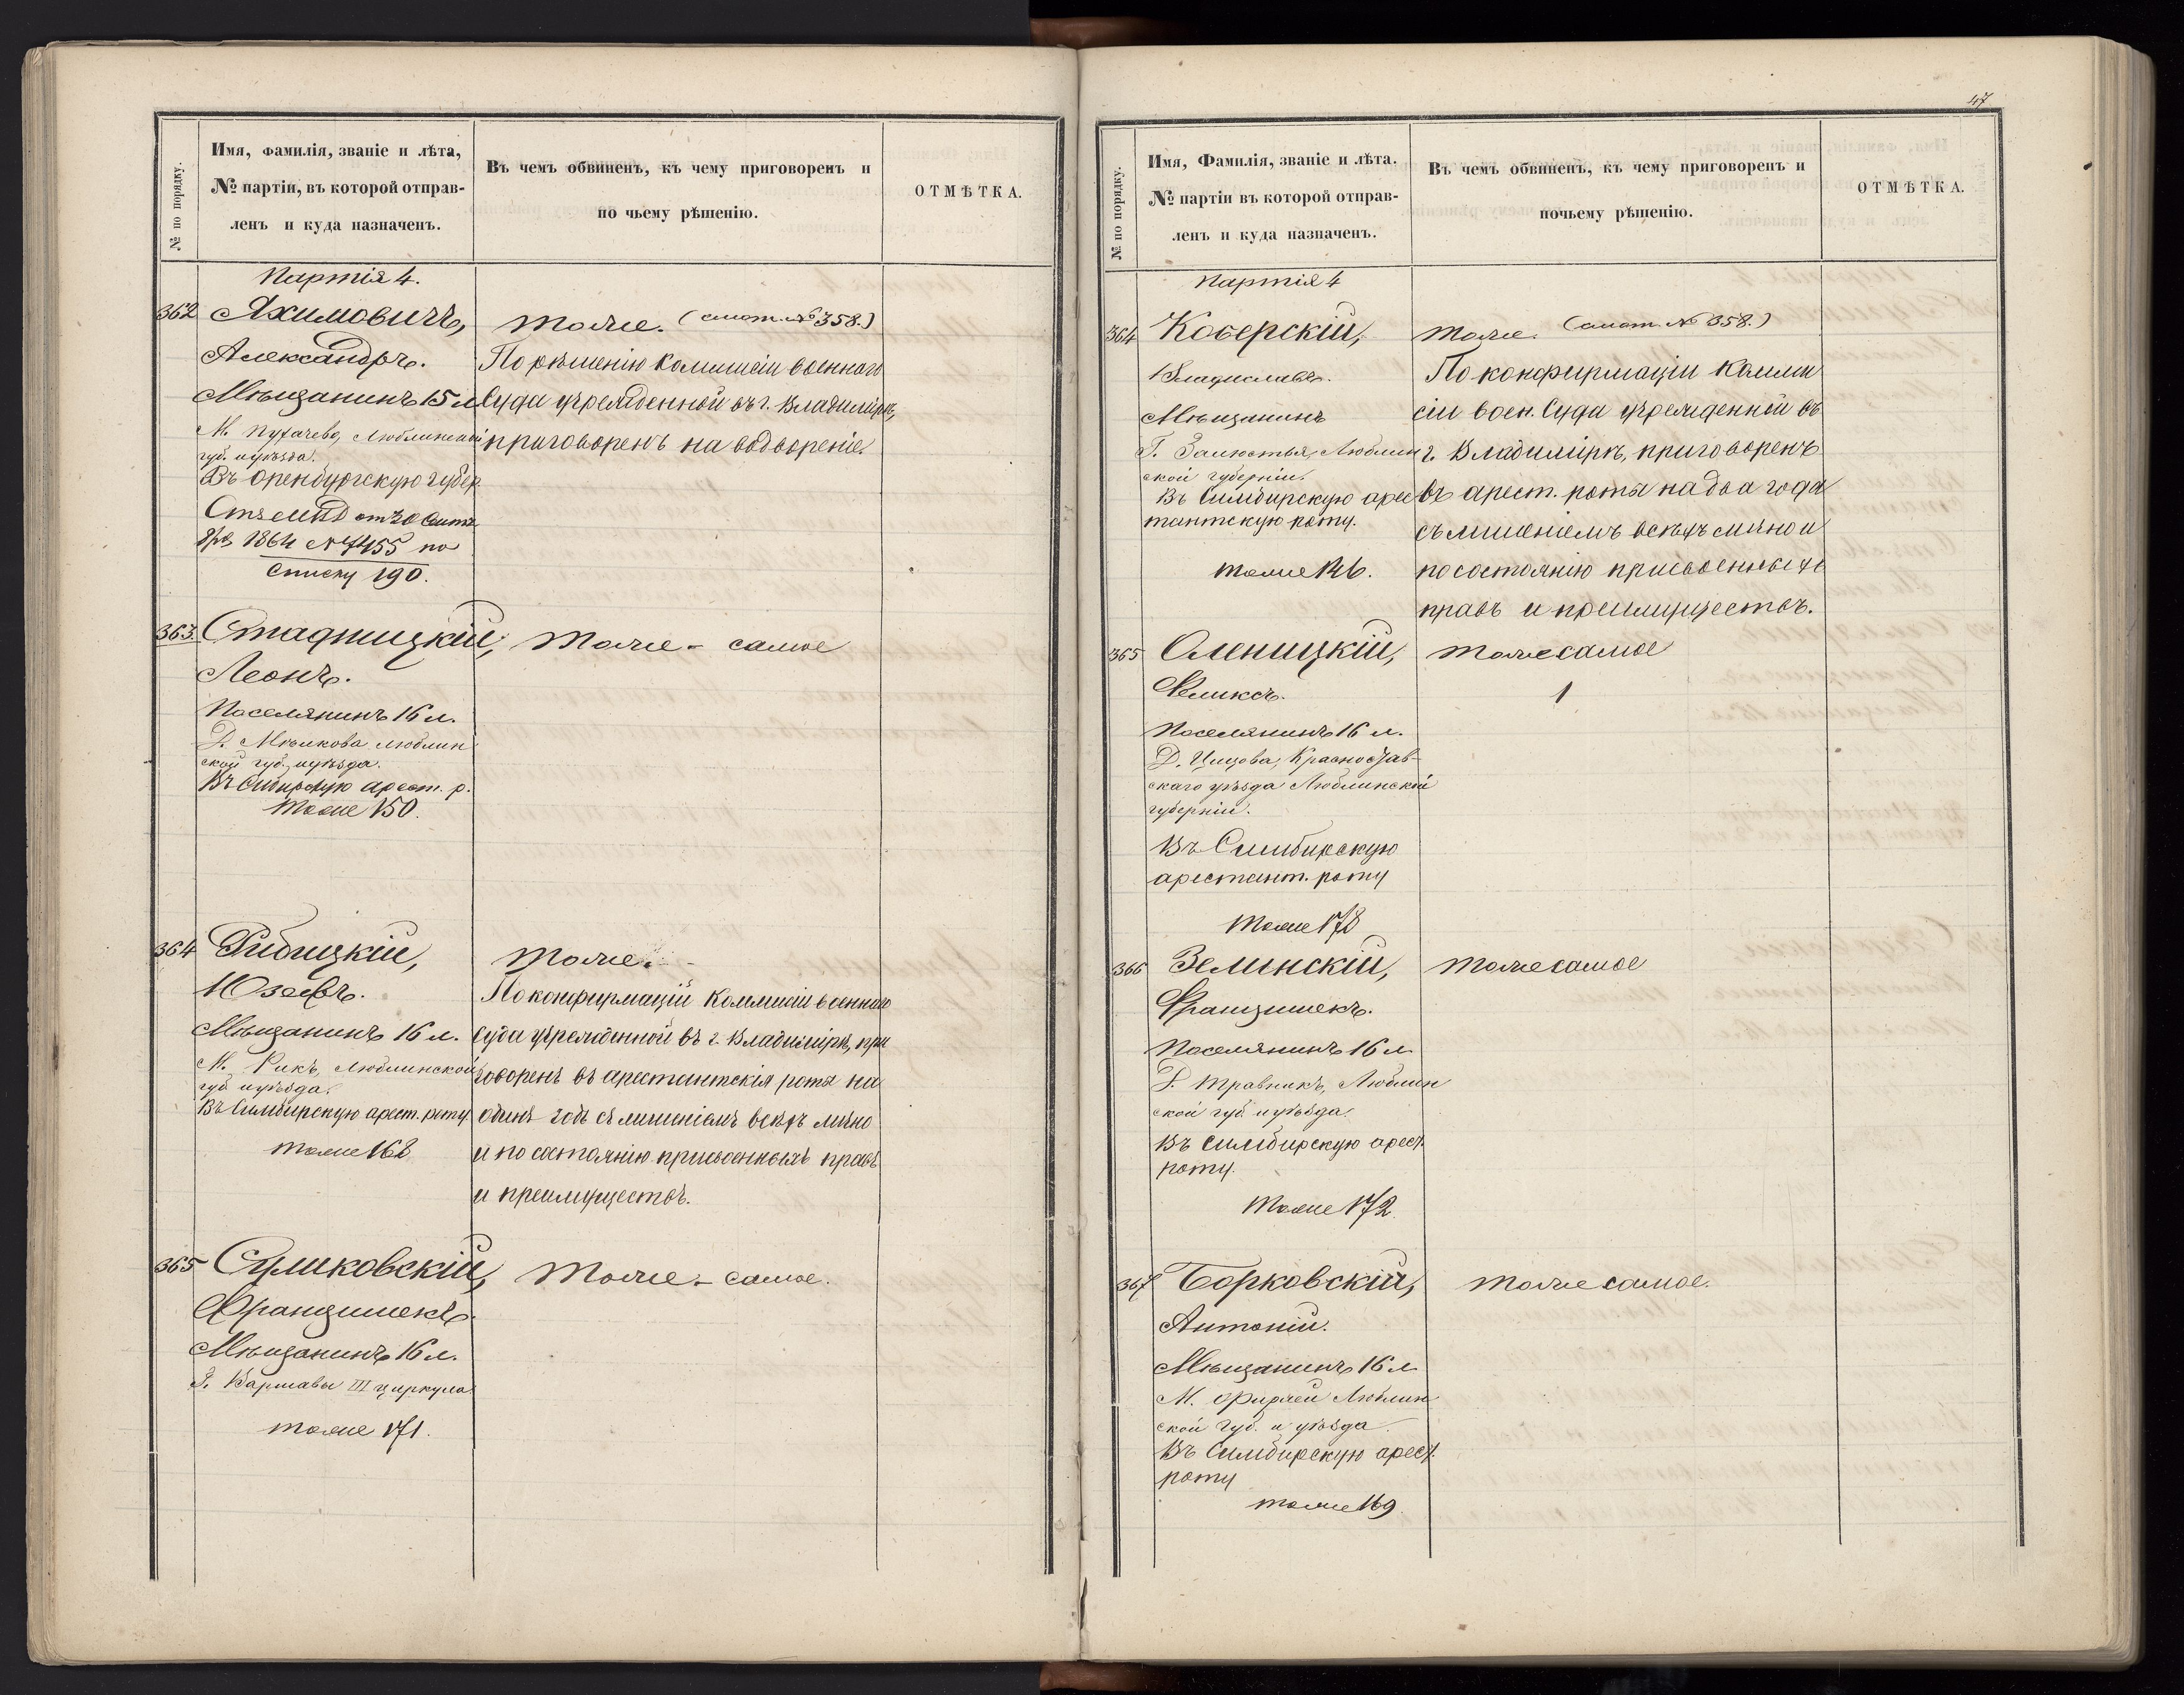 № по порядку.
Имя, фамилія, званіе и лѣта,
№ партіи, въ которой отправ-
ленъ и куда назначенъ.
Въ чемъ обвиненъ, къ чему приговоренъ и
по чьему рѣшенію.
ОТМѢТКА.
Партія 4.
362 Яхимовичъ,
Александръ.
Мѣщанинъ 15 л.
М. Пухачево, Люблинской
губ. и уѣзда.
Въ Оренбургскую губер.
Ст. ст. МВД от 30 Сентя
бря 1864 № 7455 по
списку 190.
Тоже. (смот. № 358.)
По рѣшенію Коммисіи военнаго
Суда учрежденной въ г. Владимірѣ,
приговоренъ на водвореніе.
363. Стадницкій,
Леонъ.
Поселянинъ 16 л.
Д. Мѣлкова Люблин
ской губ. и уѣзда.
Въ Симбирскую арест. р.
Тоже 150.
Тоже - самое
364 Рибицкій,
Юзефъ.
Мѣщанинъ 16 л.
М. Рикъ, Люблинской
губ. и уѣзда.
Въ Симбирскую арест. роту
Тоже 168
Тоже.
По конфирмаціи Коммисіи военнаго
Суда учрежденной въ г. Владимірѣ, при
говоренъ въ арестантскія роты на
одинъ годъ съ лишеніемъ всѣхъ лично
и по состоянію присвоенныхъ правъ
и преимуществъ.
365 Суликовскій,
Францишекъ.
Мѣщанинъ 16 л.
Г. Варшавы III циркула
Тоже 171.
Тоже - самое.
47
№ по порядку.
Имя, Фамилія, званіе и лѣта.
№ партіи въ которой отправ-
ленъ и куда назначенъ.
Въ чемъ обвиненъ, къ чему приговоренъ и
почьему рѣшенію.
ОТМѢТКА.
Партія 4
364 Коберскій,
Владиславъ.
Мѣщанинъ
Г. Замостья, Люблин
ской губерніи.
Въ Симбирскую арес
тантскую роту.
Тоже 146.
Тоже. (смот. № 358.)
По конфирмаціи Комми
сіи воен. Суда учрежденной въ
г. Владимірѣ, приговоренъ
въ арест. роты на два года
съ лишеніемъ всѣхъ лично и
по состоянію присвоенныхъ
правъ и преимуществъ.
365 Оленицкій,
Феликсъ.
Поселянинъ 16 л.
Д. Цицова, Красностав-
скаго уѣзда Люблинской
губерніи.
Въ Симбирскую
арестант. роту
Тоже 178
Тоже самое
1
366 Зелинскій,
Францишекъ.
Поселянинъ 16 л
Д. Травникъ, Люблин
ской губ. и уѣзда.
Въ Симбирскую арест.
роту.
Тоже 172.
Тоже самое
367 Борковскій,
Антоній.
Мѣщанинъ 16 л
М. Фирлей Люблин
ской Губ. и уѣзда.
Въ Симбирскую арест.
роту
Тоже 169.
Тоже самое.